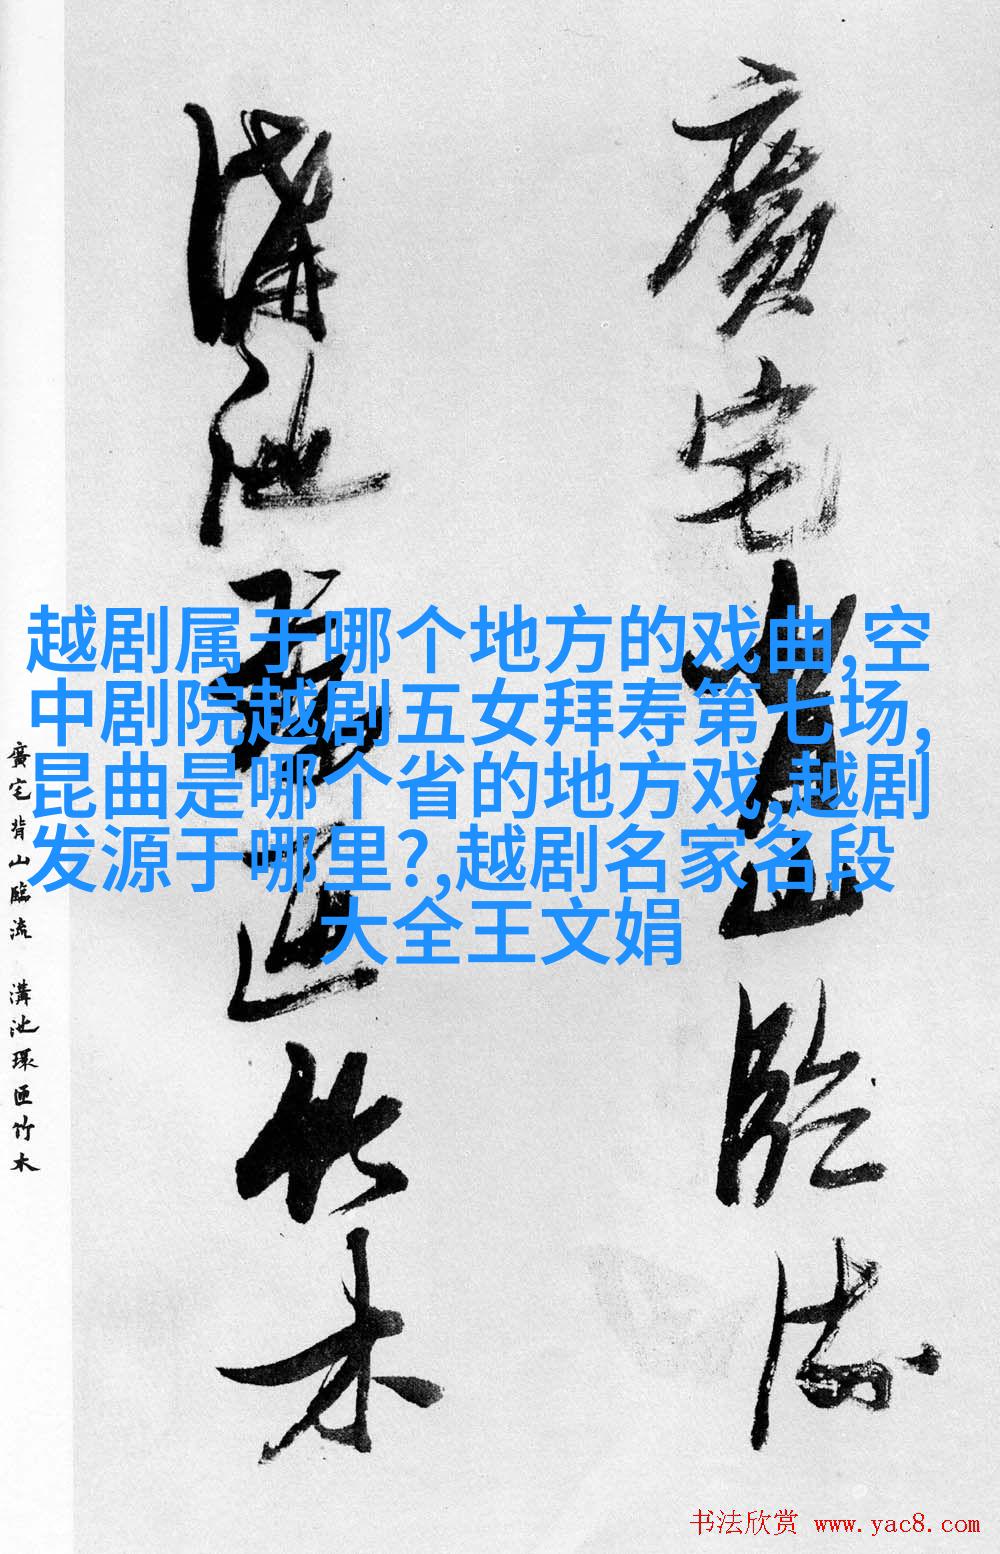 廣宅背山臨流
溝池環匝竹木
越剧属于哪个地方的戏曲,空
中剧院越剧五女拜寿第七场,
昆曲是哪个省的地方戏,越剧
发源于哪里?,越剧名家名段
大全王文娟
廣宅背山臨流 溝池環匝竹木
书法欣赏 www.yac8.com